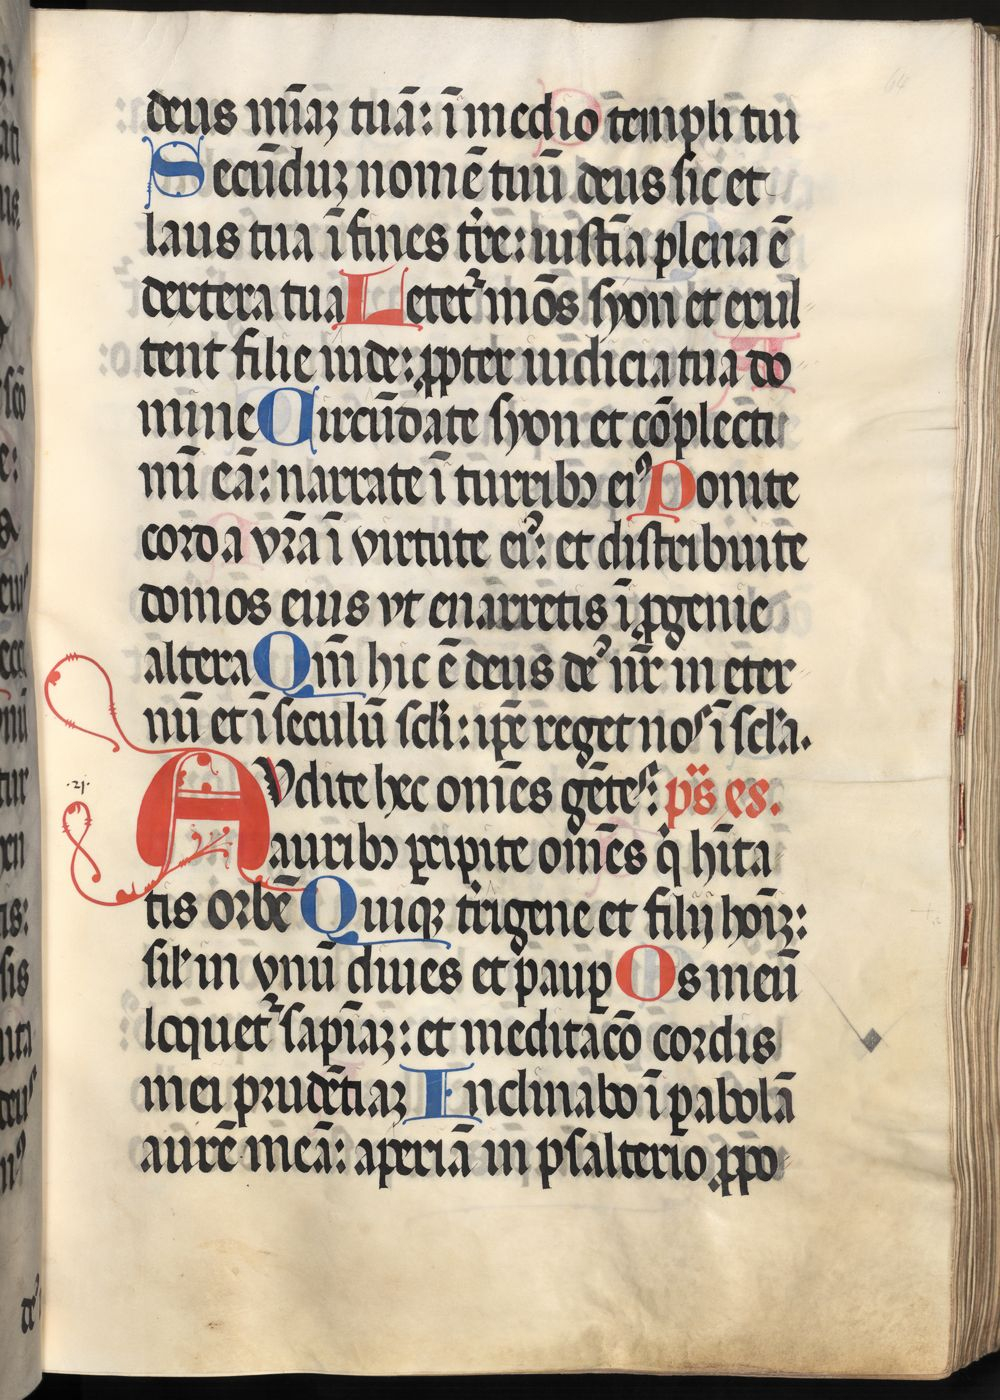 deus mīaꝫ tuā: ī medio tēmpli tui
Secūduꝫ nomē tuū deus sic et
laus tua ī fines tr̄e: iustīa plena ē
dextera tua Letet᷑ mōs syon et exul
tent filie iude: ꝓpter iudicia tua do
mine Circūdate syon et cōplecti
mī eā: narrate ī turribꝫ eiꝰ Ponite
corda vr̄a ī virtute eiꝰ: et distribuite
domos eius vt enarretis ī ꝓgenie
altera Qm̄ hic ē deus deꝰ nr̄ in eter
nū et ī seculū scl̄i: ip̄e reget nos ī scl̄a.
·21· AVdite hec om̄es gētes: ps̄ es.
auribꝫ ꝑcipite om̄es q̄ hīta
tis orbē Quiqꝫ t̄rigene et filij hoīꝫ:
sil̄ in vnū diues et paup̱ Os meū
loquet᷑ sapīaꝫ: et meditacō cordis
mei prudētiaꝫ Inclinabo ī ꝑabolā
aurē meā: aperiā in psalterio ꝓpo